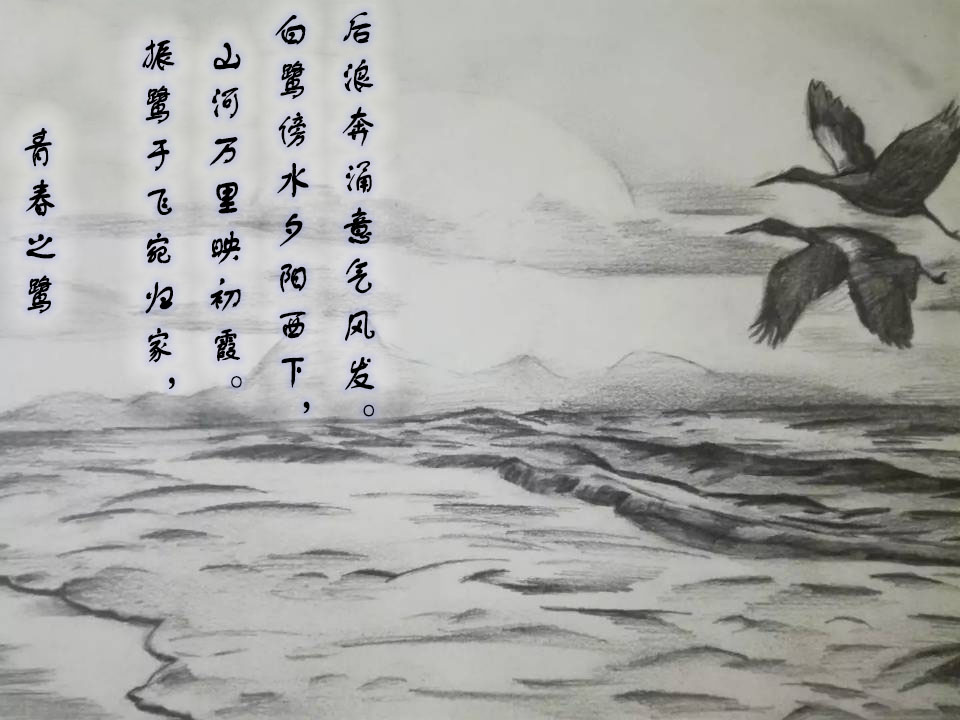 青春之鹭
振鹭于飞宛归家，
山河万里映初霞。
白鹭傍水夕阳西下，
后浪奔涌意气风发。